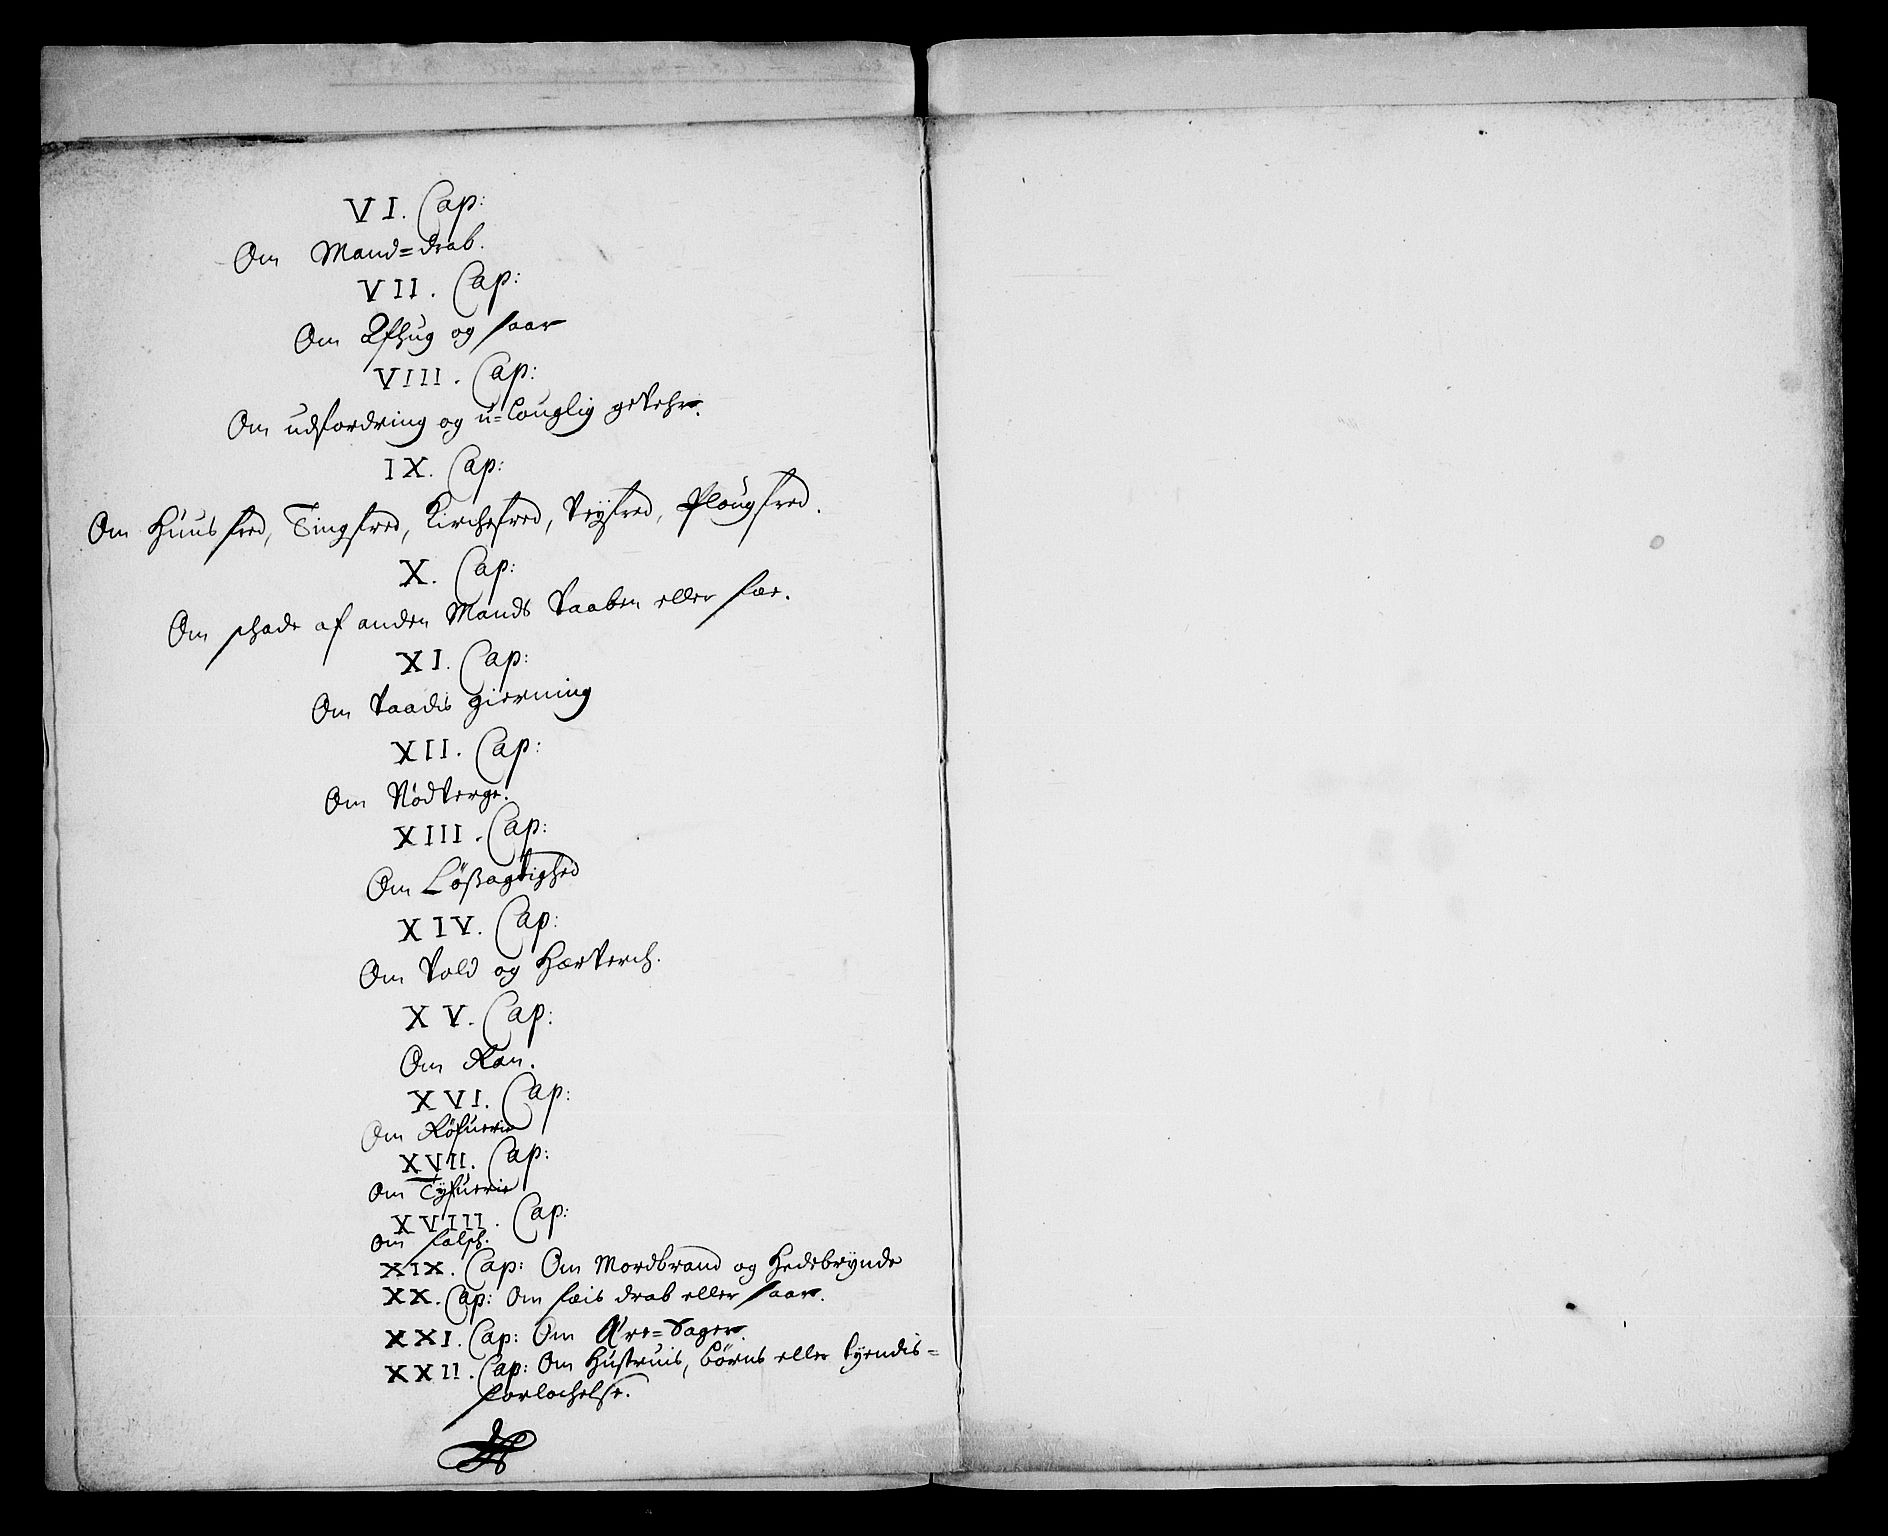 VI. Cap:
Om Mand=drab.
VII. Cap:
Om Afhug og saar
VIII. Cap:
Om udfordring og u=louglig gevehr.
IX. Cap:
Om Huusfred, Tingfred, Kirchefred, Veyfred, Plougfred.
X. Cap:
Om schade af anden Mands Vaaben eller fæe.
XI. Cap:
Om Vaadis gierning
XII. Cap:
Om Nödverge.
XIII. Cap:
Om Lößagtighed
XIV. Cap:
Om Vold og Hærverch.
XV. Cap:
Om Ran.
XVI. Cap:
Om Röfuerie
XVII. Cap:
Om Tyfuerie
XVIII. Cap:
Om falsch.
XIX. Cap: Om Mordbrand og Hedebrynde
XX. Cap: Om fæis drab eller saar.
XXI. Cap: Om Ære=Sager.
XXII. Cap: Om Hustruis, börns eller tyendis=
forlochelse.